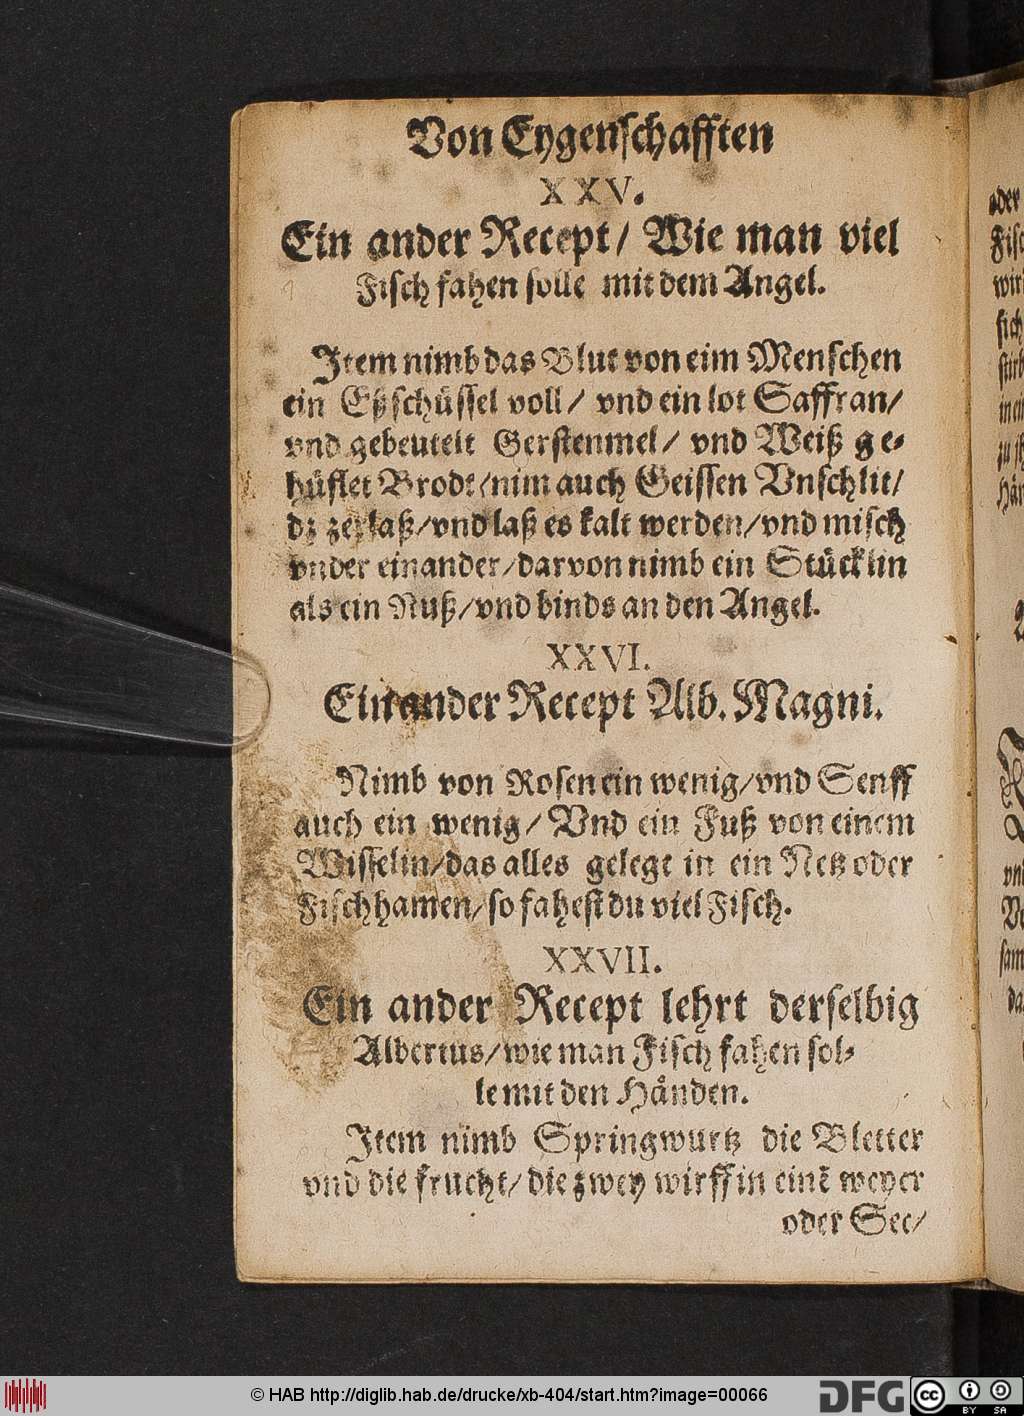 Von Eygenschafften
XXV.
Ein ander Recept / Wie man viel
Fisch fahen solle mit dem Angel.
Item nimb das Blut von eim Menschen
ein Eßschüssel voll / vnd ein lot Saffran /
vnd gebeutelt Gerstenmel / vnd Weiß ge-
hüflet Brodt / nim auch Geissen Vnschlit /
dz zerlaß / vnd laß es kalt werden / vnd misch
vnder einander / darvon nimb ein Stücklin
als ein Nuß / vnd binds an den Angel.
XXVI.
Ein ander Recept Alb. Magni.
Nimb von Rosen ein wenig / vnd Senff
auch ein wenig / Vnd ein Fuß von einem
Wisselin / das alles gelegt in ein Netz oder
Fischhamen / so fahest du viel Fisch.
XXVII.
Ein ander Recept lehrt derselbig
Albertus / wie man Fisch fahen sol-
le mit den Händen.
Item nimb Springwurtz die Bletter
vnd die frucht / die zwey wirff in einẽ weyer
oder See /
© HAB http://diglib.hab.de/drucke/xb-404/start.htm?image=00066
DFG
cc BY SA